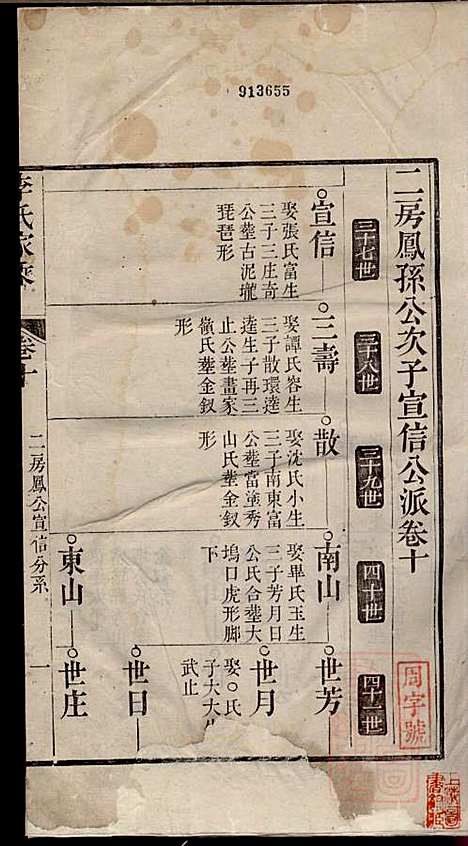 913655
二房鳳孫公次子宣信公派卷十
三十七世
三十八世
三十九世
四十世
四十一世
宣信
娶張氏富生
三子三庄奇
公塟古泥壠
琵琶形
三壽
娶譚氏容生
三子散環逵
逵生子再三
止公塟畫家
嶺氏塟金釵
形
散
娶沈氏小生
三子南東富
公塟當塗秀
山氏塟金釵
形
南山
娶畢氏玉生
三子芳月日
公氏合塟大
塢口虎形脚
下
世芳
世月
娶○氏
子大大
武止
世日
東山
世庄
李氏家乘
卷十
二房鳳公宣信分系
一
周字號